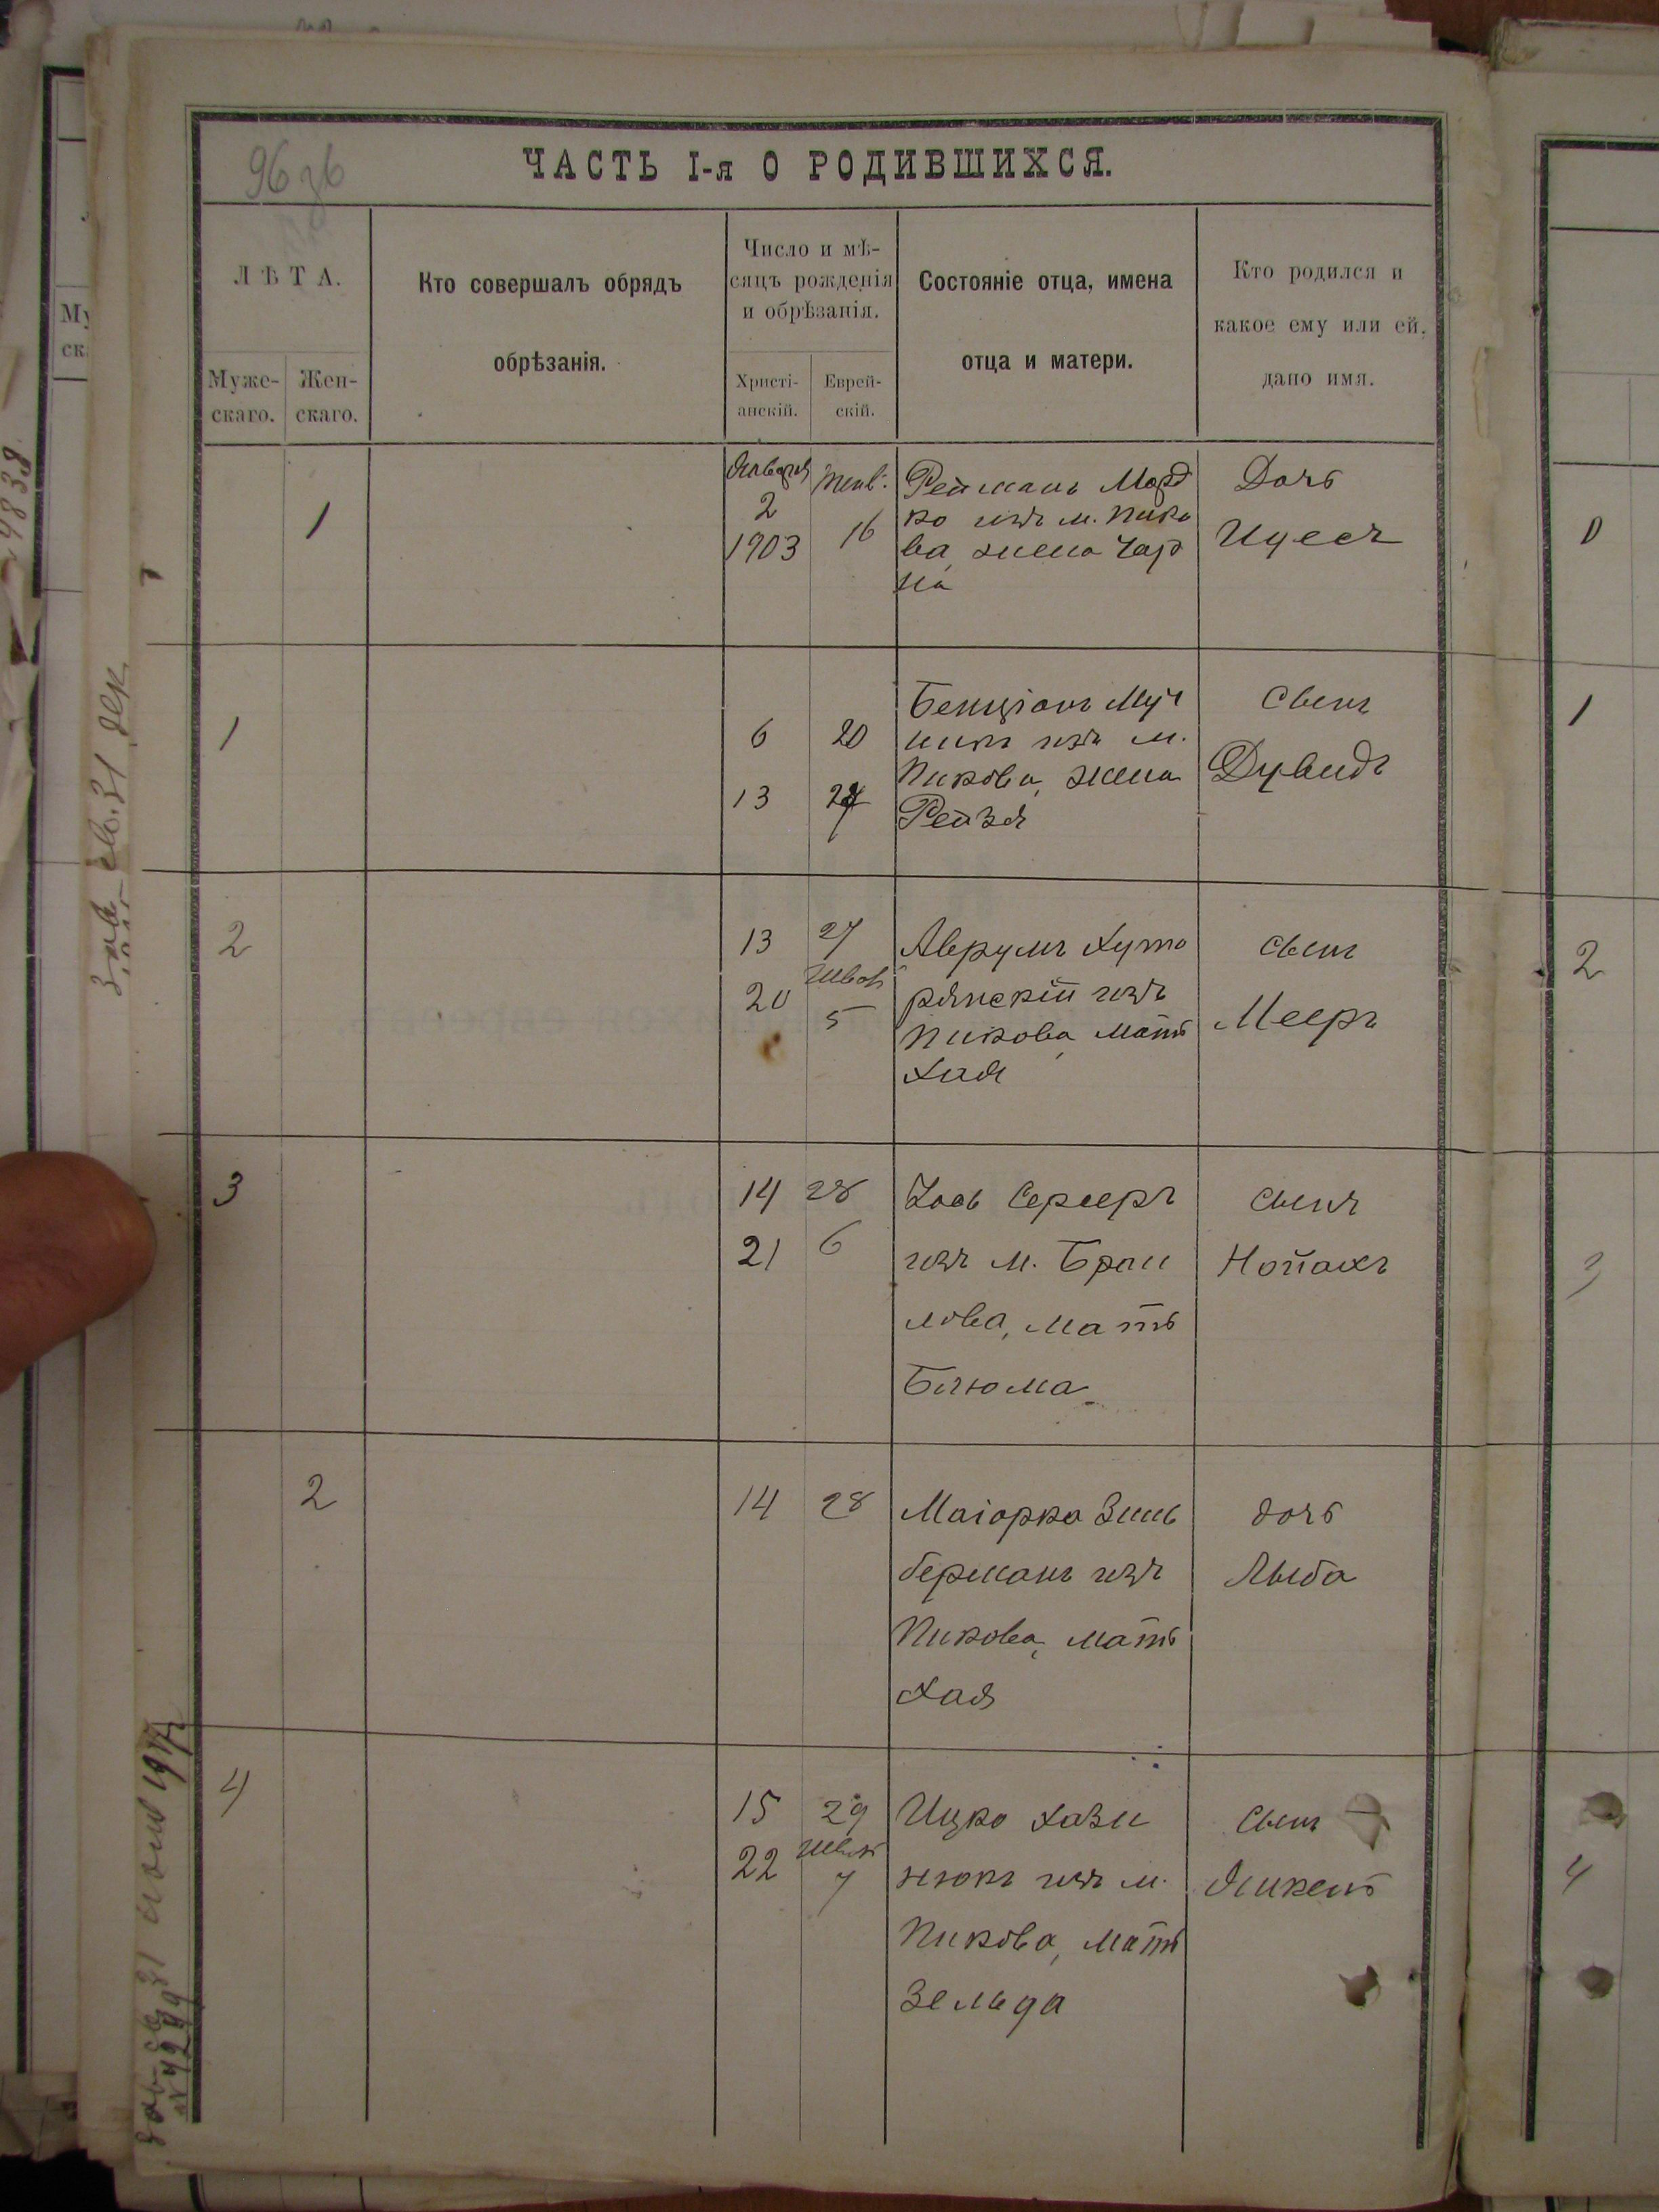 96 зв
ЧАСТЬ I-я О РОДИВШИХСЯ.
ЛѢТА.
Муже-
скаго.
Жен-
скаго.
Кто совершалъ обрядъ
обрѣзанія.
Число и мѣ-
сяцъ рожденія
и обрѣзанія.
Христі-
анскій.
Еврей-
скій.
Состояніе отца, имена
отца и матери.
Кто родился и
какое ему или ей,
дано имя.
1
Января
2
1903
Тев:
16
РейманъМорд
ко изъ м. Пико
ва, жена Чар
на
Дочь
1
6
13
20
27
Бенціонъ Муч
никъ изъ м.
Пикова, жена
Рейзя
Сынъ
Дувидъ
2
13
20
27
Шват
5
Аврумъ Хуто
рянскій изъ
Пикова, мать
Хая
Сынъ
Мееръ
3
14
21
28
6
изъ м. Браи
лова, мать
Блюма
Сынъ
2
14
28
Маіорко Зиль
берманъ изъ
Пикова, мать
Хая
дочь
Лыба
4
15
22
29
Шват
7
Ицко Хази
нюкъ изъ м.
Пикова, мать
Зельда
Сынъ
0
1
2
3
4